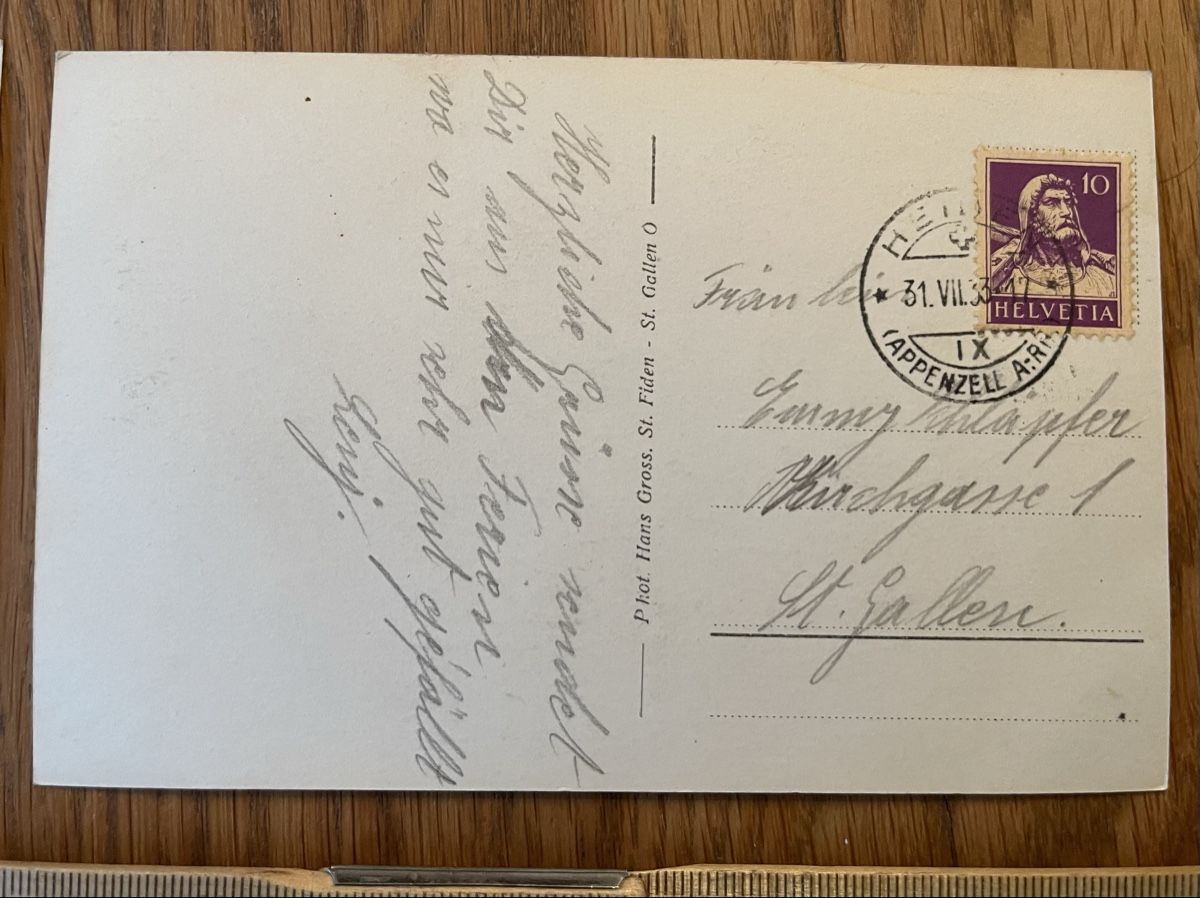 Herzliche Grüsse sendet
Dir aus den Ferien
wo es mir sehr gut gefällt
Phot. Hans Gross. St. Fiden - St. Gallen O
10
HELVETIA
31. VII. 33 17
IX
(APPENZELL A:RH
Fräulein
Emmy Schläpfer
Kirchgasse 1
St. Gallen.